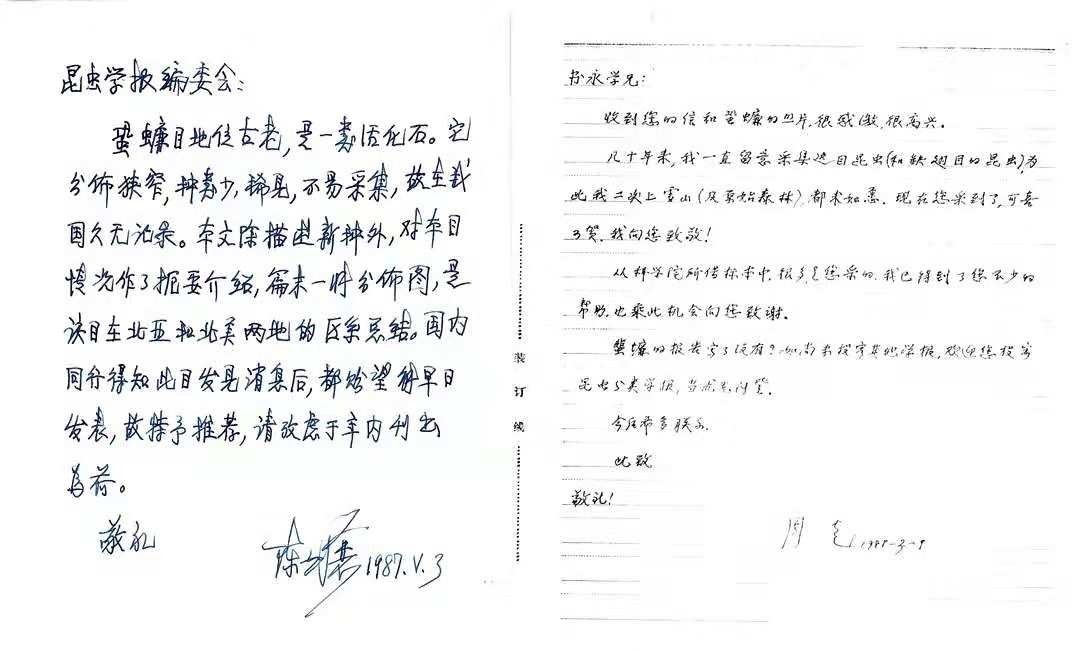 昆虫学报编委会：
蛩蠊目地位古老，是一类活化石。它
分佈狭窄，种类少，稀見，不易采集，故在我
国久无记录。本文除描述新种外，对本目
情况作了扼要介绍，篇末一附分佈图，是
该目在北亚和北美两地的区系总结。国内
同行得知此目发見消息后，都盼望能早日
发表，故特予推荐，请考虑于年内刊出
为荷。
敬礼
1987.V.3
装
订
线
书永学兄：
收到您的信和蛩蠊的照片，很感激，很高兴。
几十年来，我一直留意采集这目昆虫(和缺翅目的昆虫)，为
此我三次上雪山(及原始森林)，都未如愿．现在您采到了，可喜
可贺，我向您致敬！
从科学院所借标本中，很多是您采的，我已得到了您不少的
帮助，也乘此机会向您致谢。
蛩蠊的报告写了没有？如尚未投寄其他学报，欢迎您投寄
昆虫分类学报，
今后希多联系．
此致
敬礼！
周尧